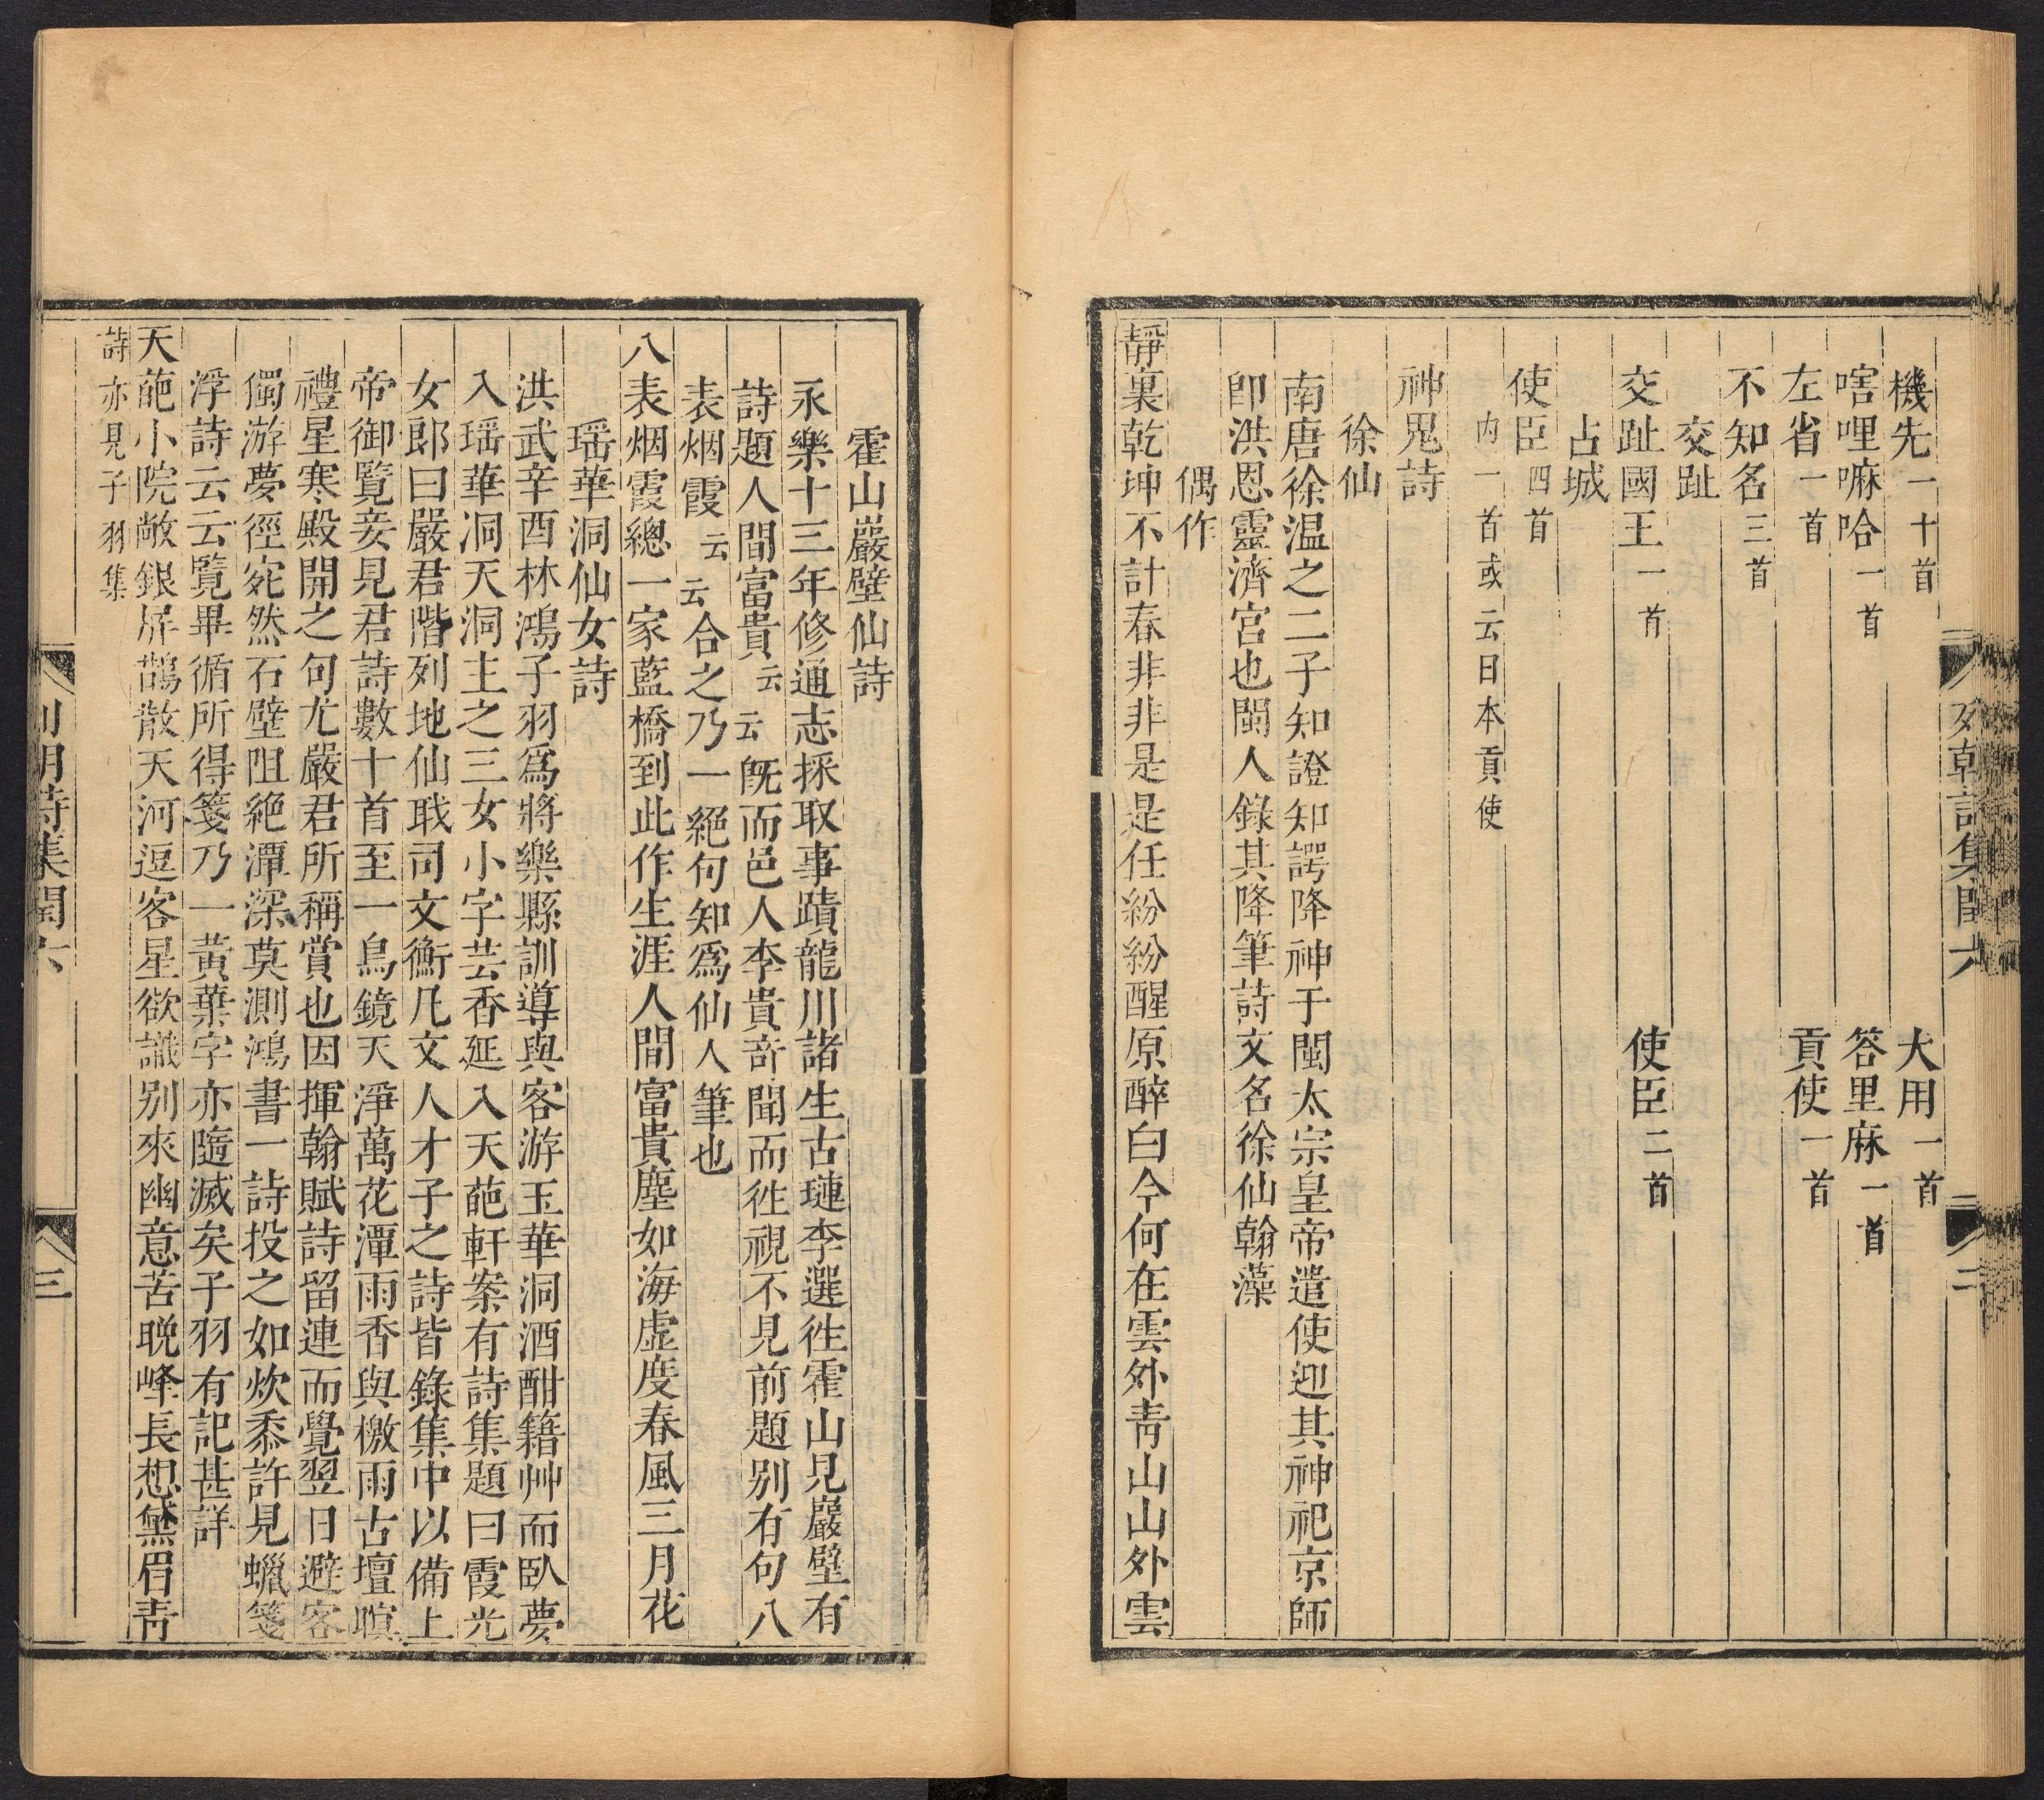 機先一十首 大用一首
嗐哩嘛哈一首 答里麻一首
左省一首 貢使一首
不知名三首
交趾
交趾國王一首 使臣二首
占城
使臣四首
内一首或云日本貢使
神鬼詩
徐仙
南唐徐温之二子知證知諤降神于閩太宗皇帝遣使迎其神祀京師
卽洪恩靈濟宮也閩人錄其降筆詩文名徐仙翰藻
偶作
靜裏乾坤不計春非非非是是任紛紛醒原醉白今何在雲外靑山山外雲
霍山巖壁仙詩
永樂十三年修通志採取事蹟龍川諸生古璉李選徃霍山見巖壁有
詩題人間富貴云云旣而邑人李貴竒聞而徃視不見前題别有句八
表烟霞云云合之乃一絕句知爲仙人筆也
八表烟霞總一家藍橋到此作生涯人間富貴塵如海虛度春風三月花
瑶華洞仙女詩
洪武辛酉林鴻子羽爲將樂縣訓導與客游玉華洞酒酣籍艸而臥夢
入瑶華洞天洞主之三女小字芸香延入天葩軒案有詩集題曰霞光
女郎曰嚴君階列地仙戢司文衡凡文人才子之詩皆錄集中以備上
帝御覽妾見君詩數十首至一鳥鏡天淨萬花潭雨香與檄雨古壇暝
禮星寒殿開之句尤嚴君所稱賞也因揮翰賦詩留連而覺翌日避客
獨游夢徑宛然石壁阻絶潭深莫測鴻書一詩投之如炊黍許見蠟箋
浮詩云云覽畢循所得箋乃一黃葉字亦隨滅矣子羽有記甚詳
天葩小院敞銀屏鵲散天河逗客星欲識别來幽意苦晚峰長想黛眉靑
詩亦見子羽集
列朝詩集閏六
二
三